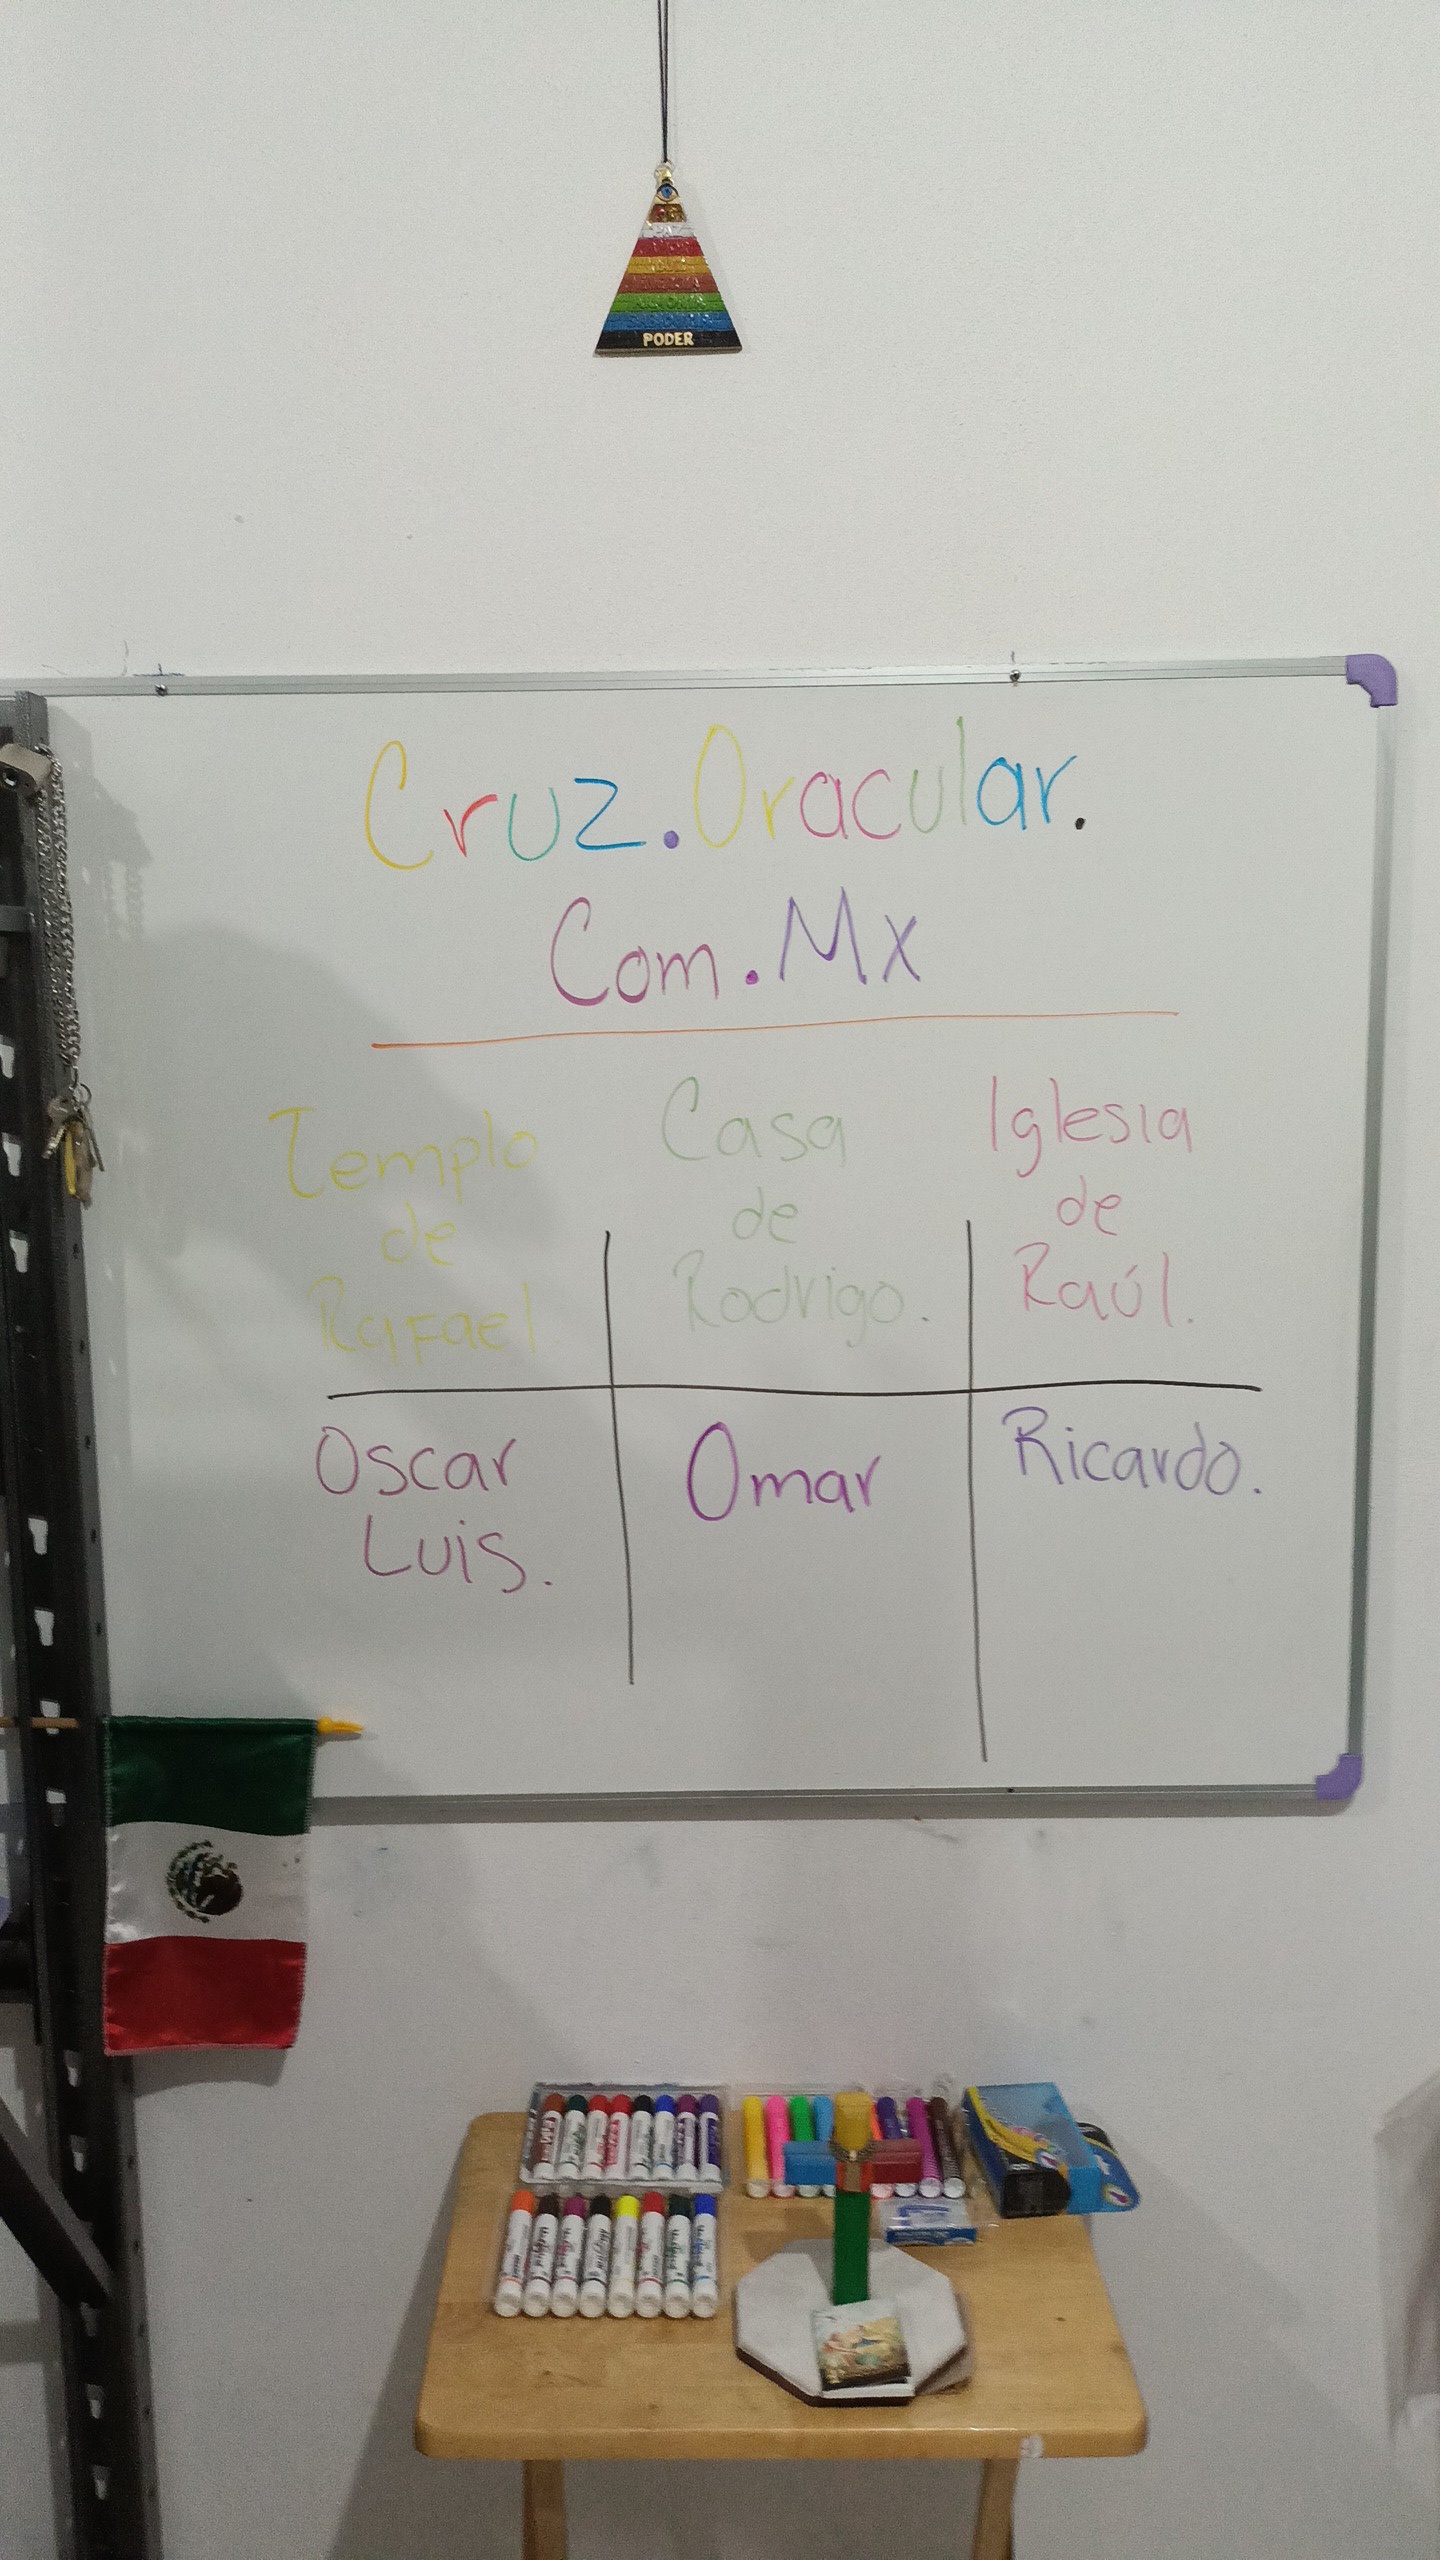 PODER
Cruz.Oracular.
Com.Mx
Templo
de
Rafael.
Casa
de
Rodrigo.
Iglesia
de
Raúl.
Oscar
Luis.
Omar
Ricardo.